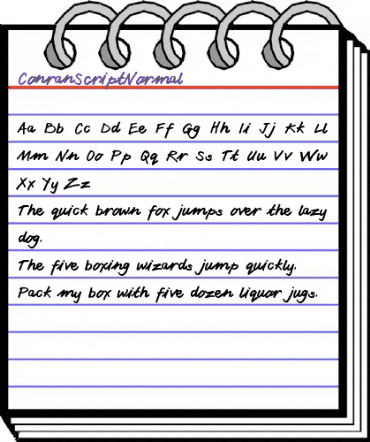 ConranScriptNormal
Aa Bb Cc Dd Ee Ff Gg Hh Ii Jj Kk Ll
Mm Nn Oo Pp Qq Rr Ss Tt Uu Vv Ww
Xx Yy Zz
The quick brown fox jumps over the lazy
dog.
The five boxing wizards jump quickly.
Pack my box with five dozen liquor jugs.